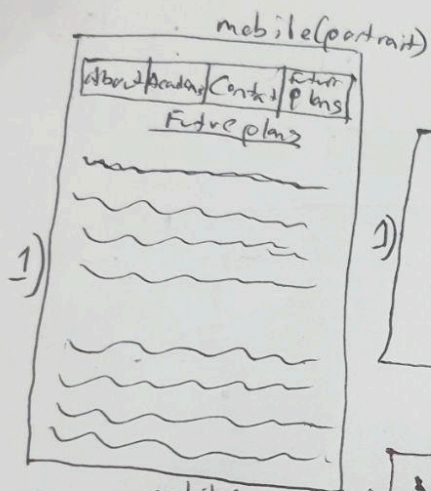 mobile(portrait)
About Academ Contact Future plans
Future plans
1)
1)